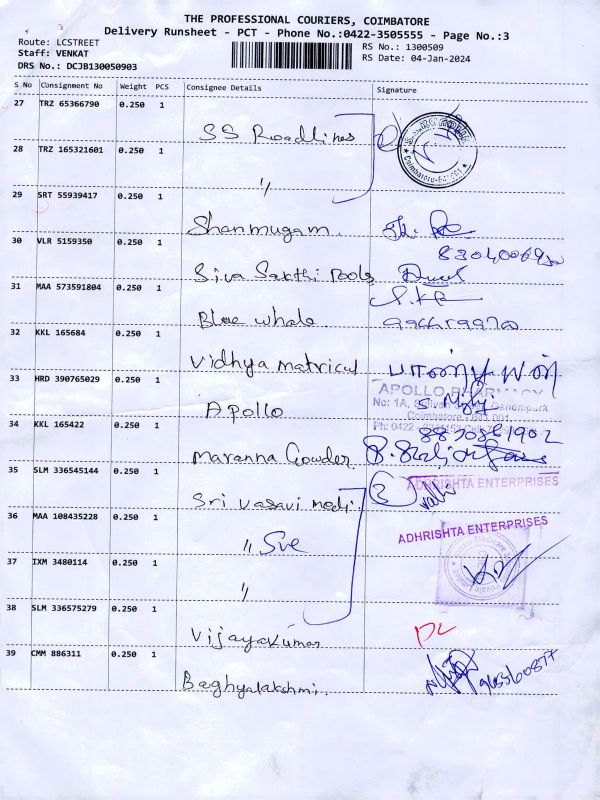 THE PROFESSIONAL COURIERS, COIMBATORE
Delivery Runsheet - PCT - Phone No.:0422-3505555 - Page No.:3
Route: LCSTREET
RS No.: 1300509
Staff: VENKAT
RS Date: 04-Jan-2024
DRS No.: DCJB130050903
S No Consignment No Weight PCS Consignee Details Signature
27 TRZ 65366790 0.250 1
SS Roadlines
28 TRZ 165321601 0.250 1
"
Coimbatore-641 001
29 SRT 55939417 0.250 1
Shanmugam.
30 VLR 5159350 0.250 1
Siva Sakthi Tools
31 MAA 573591804 0.250 1
Blue whale.
32 KKL 165684 0.250 1
Vidhya matricul
33 HRD 390765029 0.250 1
APOLLO PHARMACY
No: 1A,
Apollo
Coimbatore
Ph: 0422
34 KKL 165422 0.250 1
8830861902
Maranna Gowder
35 SLM 336545144 0.250 1
ADHRISHTA ENTERPRISES
Sri Vasavi medi.
36 MAA 108435228 0.250 1
ADHRISHTA ENTERPRISES
" Sve
37 IXM 3480114 0.250 1
"
38 SLM 336575279 0.250 1
Vijayakumar
DL
39 CMM 886311 0.250 1
Baghyalakshmi.